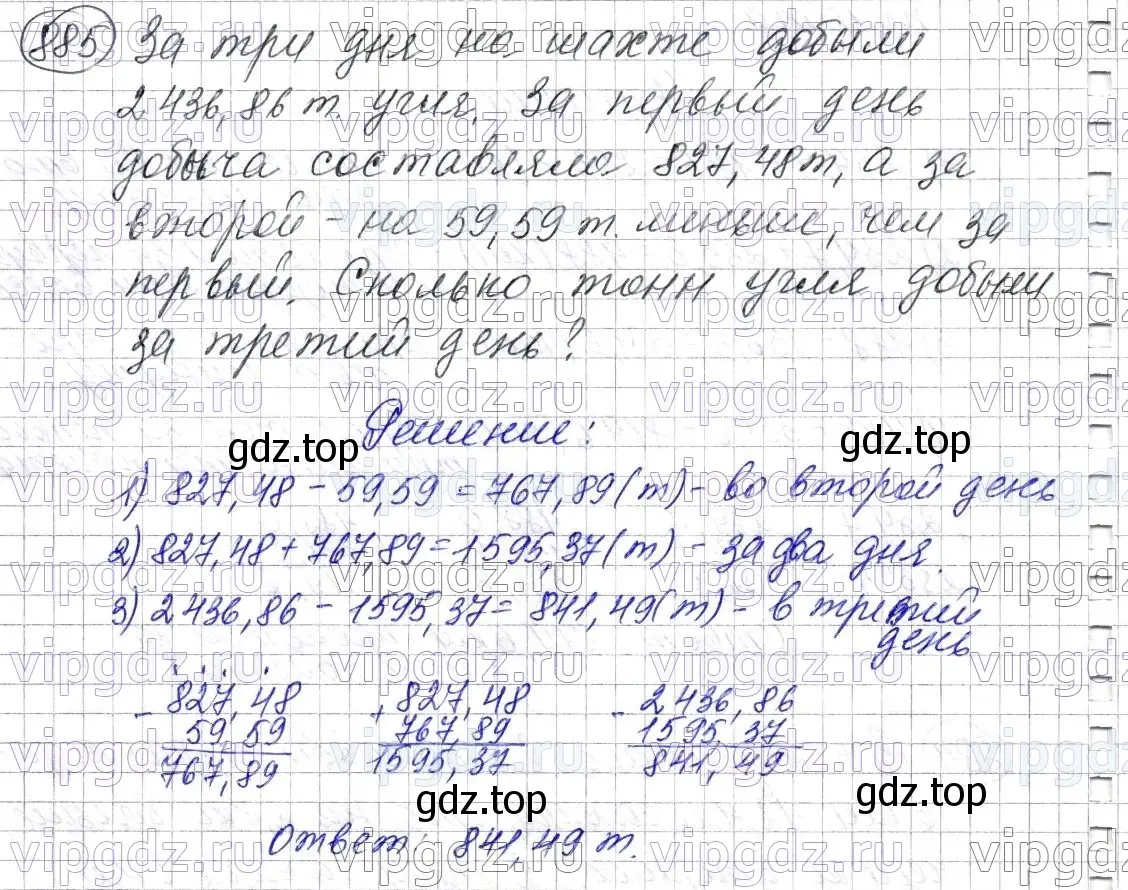 885 За три дня на шахте добыли
2 436,86 т. угля. За первый день
добыча составляла 827,48 т, а за
второй - на 59,59 т. меньше, чем за
первый. Сколько тонн угля добыли
за третий день?
Решение:
gdz.top gdz.top
1) 827,48 - 59,59 = 767,89 (т) - во второй день
2) 827,48 + 767,89 = 1595,37 (т) - за два дня.
3) 2 436,86 - 1595,37 = 841,49 (т) - в третий
день
- 827,48 + 827,48 - 2 436,86
59,59 767,89 1595,37
767,89 1595,37 841,49
gdz.top gdz.top
Ответ: 841,49 т.
vipgdz.ru